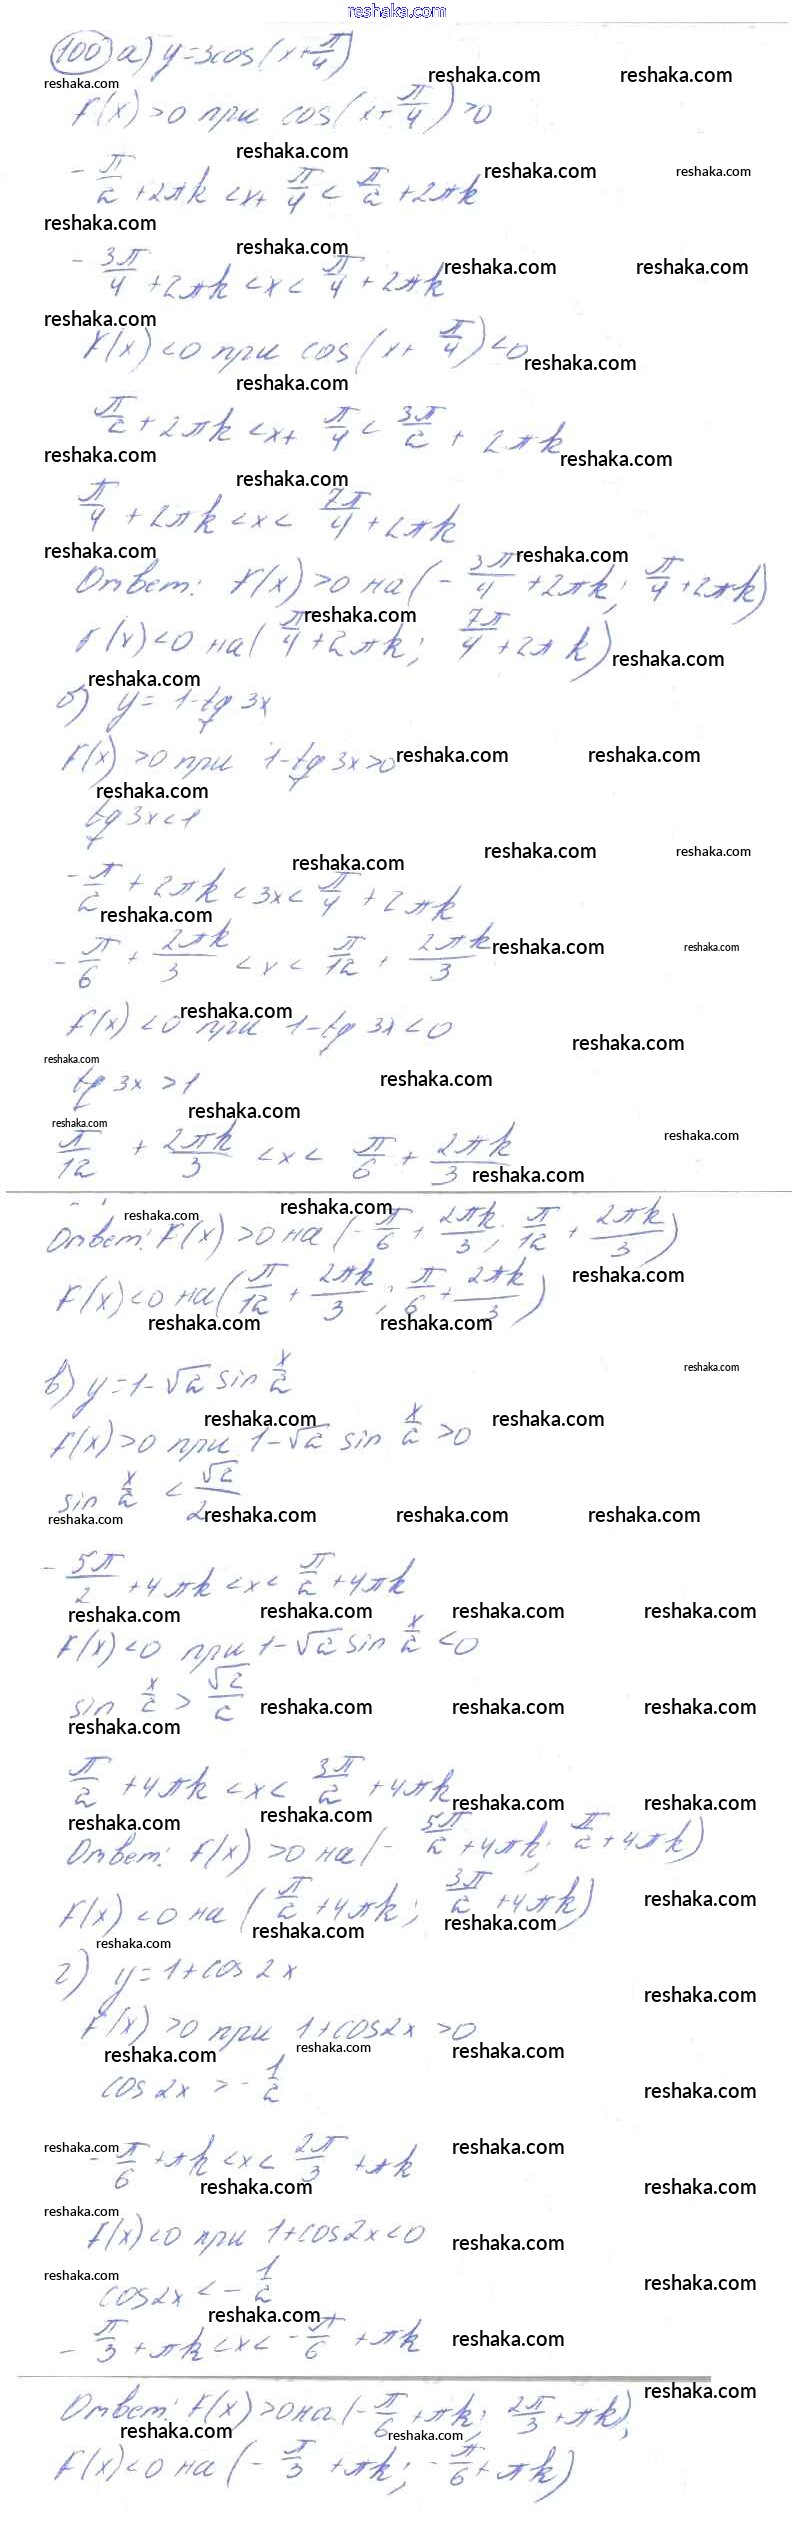 reshaka.com
100 а) y=3cos(x+π/4)
f(x)>0 при cos(x+π/4)>0
-π/2+2πk<x+π/4<π/2+2πk
-3π/4+2πk<x<π/4+2πk
f(x)<0 при cos(x+π/4)<0
π/2+2πk<x+π/4<3π/2+2πk
π/4+2πk<x<7π/4+2πk
Ответ: f(x)>0 на (-3π/4+2πk; π/4+2πk)
f(x)<0 на (π/4+2πk; 7π/4+2πk)
б) y=1-tg3x
f(x)>0 при 1-tg3x>0
tg3x<1
-π/2+2πk<3x<π/4+2πk
-π/6+2πk/3<x<π/12+2πk/3
f(x)<0 при 1-tg3x<0
tg3x>1
π/12+2πk/3<x<π/6+2πk/3
Ответ: f(x)>0 на (-π/6+2πk/3; π/12+2πk/3)
f(x)<0 на (π/12+2πk/3; π/6+2πk/3)
в) y=1-√2 sin x/2
f(x)>0 при 1-√2 sin x/2>0
sin x/2<√2/2
-5π/2+4πk<x<π/2+4πk
f(x)<0 при 1-√2 sin x/2<0
sin x/2>√2/2
π/2+4πk<x<3π/2+4πk
Ответ: f(x)>0 на (-5π/2+4πk; π/2+4πk)
f(x)<0 на (π/2+4πk; 3π/2+4πk)
г) y=1+cos2x
f(x)>0 при 1+cos2x>0
cos2x>-1/2
-π/6+πk<x<2π/3+πk
f(x)<0 при 1+cos2x<0
cos2x<-1/2
-π/3+πk<x<-π/6+πk
Ответ: f(x)>0 на (-π/6+πk; 2π/3+πk),
f(x)<0 на (-π/3+πk; -π/6+πk)